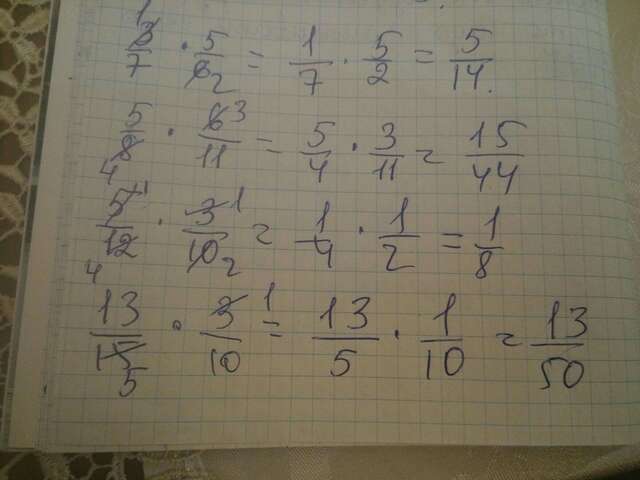 3/7 · 5/6 = 1/7 · 5/2 = 5/14.
5/8 · 6/11 = 5/4 · 3/11 = 15/44
5/12 · 3/10 = 1/4 · 1/2 = 1/8
13/15 · 3/10 = 13/5 · 1/10 = 13/50